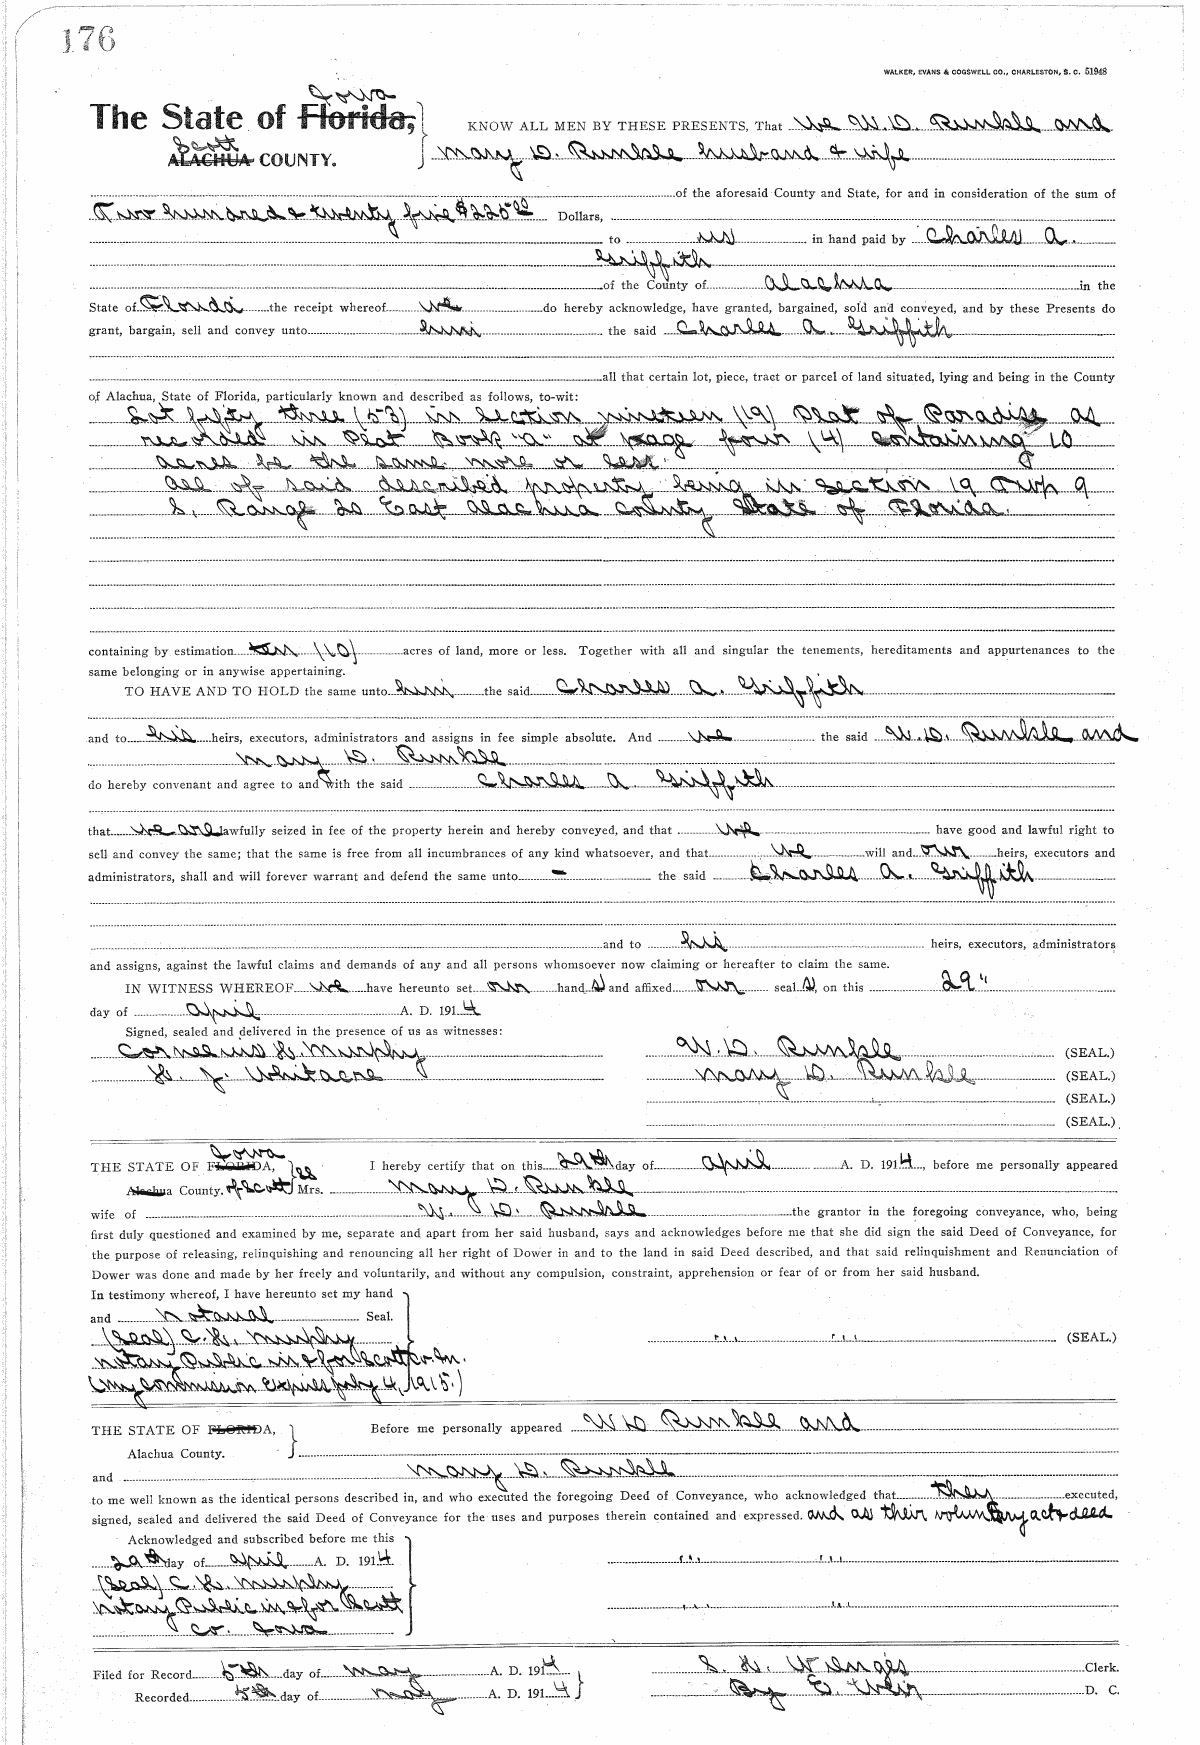 176
WALKER, EVANS & COGSWELL CO., CHARLESTON, S. C. 51948
Iowa
The State of Florida, KNOW ALL MEN BY THESE PRESENTS, That We W. D. Runkle and
Scott
ALACHUA COUNTY. Mary D. Runkle husband & wife
of the aforesaid County and State, for and in consideration of the sum of
Two hundred & twenty five $225 00 Dollars,
to us in hand paid by Charles A.
Griffith
of the County of Alachua in the
State of Florida the receipt whereof we do hereby acknowledge, have granted, bargained, sold and conveyed, and by these Presents do
grant, bargain, sell and convey unto him the said Charles A. Griffith
all that certain lot, piece, tract or parcel of land situated, lying and being in the County
of Alachua, State of Florida, particularly known and described as follows, to-wit:
Lot fifty three (53) in Section nineteen (19) Plat of Paradise as
recorded in Plat Book "A" at page four (4) containing 10
acres be the same more or less.
All of said described property being in Section 19 Twp 9
S. Range 20 East Alachua County State of Florida.
containing by estimation ten (10) acres of land, more or less. Together with all and singular the tenements, hereditaments and appurtenances to the
same belonging or in anywise appertaining.
TO HAVE AND TO HOLD the same unto him the said Charles A. Griffith
and to his heirs, executors, administrators and assigns in fee simple absolute. And we the said W. D. Runkle and
Mary D. Runkle
do hereby convenant and agree to and with the said Charles A Griffith
that we are lawfully seized in fee of the property herein and hereby conveyed, and that we have good and lawful right to
sell and convey the same; that the same is free from all incumbrances of any kind whatsoever, and that we will and our heirs, executors and
administrators, shall and will forever warrant and defend the same unto - the said Charles A. Griffith
and to his heirs, executors, administrators
and assigns, against the lawful claims and demands of any and all persons whomsoever now claiming or hereafter to claim the same.
IN WITNESS WHEREOF we have hereunto set our hand s and affixed our seal s, on this 29"
day of April A. D. 1914
Signed, sealed and delivered in the presence of us as witnesses:
Cornelius H. Murphy W. D. Runkle (SEAL.)
H. J. Whitacre Mary D. Runkle (SEAL.)
(SEAL.)
(SEAL.)
Iowa
THE STATE OF FLORIDA, ss I hereby certify that on this 29th day of April A. D. 1914, before me personally appeared
Alachua County. of Scott Mrs. Mary D. Runkle
wife of W. D. Runkle the grantor in the foregoing conveyance, who, being
first duly questioned and examined by me, separate and apart from her said husband, says and acknowledges before me that she did sign the said Deed of Conveyance, for
the purpose of releasing, relinquishing and renouncing all her right of Dower in and to the land in said Deed described, and that said relinquishment and Renunciation of
Dower was done and made by her freely and voluntarily, and without any compulsion, constraint, apprehension or fear of or from her said husband.
In testimony whereof, I have hereunto set my hand
and Notarial Seal.
(Seal) C. H. Murphy (SEAL.)
Notary Public in & for Scott Co. Ia.
(My commission expires July 4, 1915.)
THE STATE OF FLORIDA, Before me personally appeared W D Runkle and
Alachua County.
and Mary D. Runkle
to me well known as the identical persons described in, and who executed the foregoing Deed of Conveyance, who acknowledged that they executed,
signed, sealed and delivered the said Deed of Conveyance for the uses and purposes therein contained and expressed. and as their voluntary act & deed
Acknowledged and subscribed before me this
29th day of April A. D. 1914.
(Seal) C. H. Murphy
Notary Public in & for Scott
Co. Iowa
Filed for Record 5th day of May A. D. 1914 S. H. Wienges Clerk.
Recorded 5th day of May A. D. 1914 By E. Weir D. C.